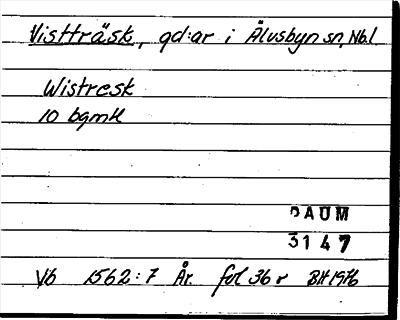 Vistträsk, gd:ar i Älvsbyn sn, Nb.l.
Wistresk
10 bgmtl
DAUM
3147
Vb 1562:7 År. fol 36 r BH 1976